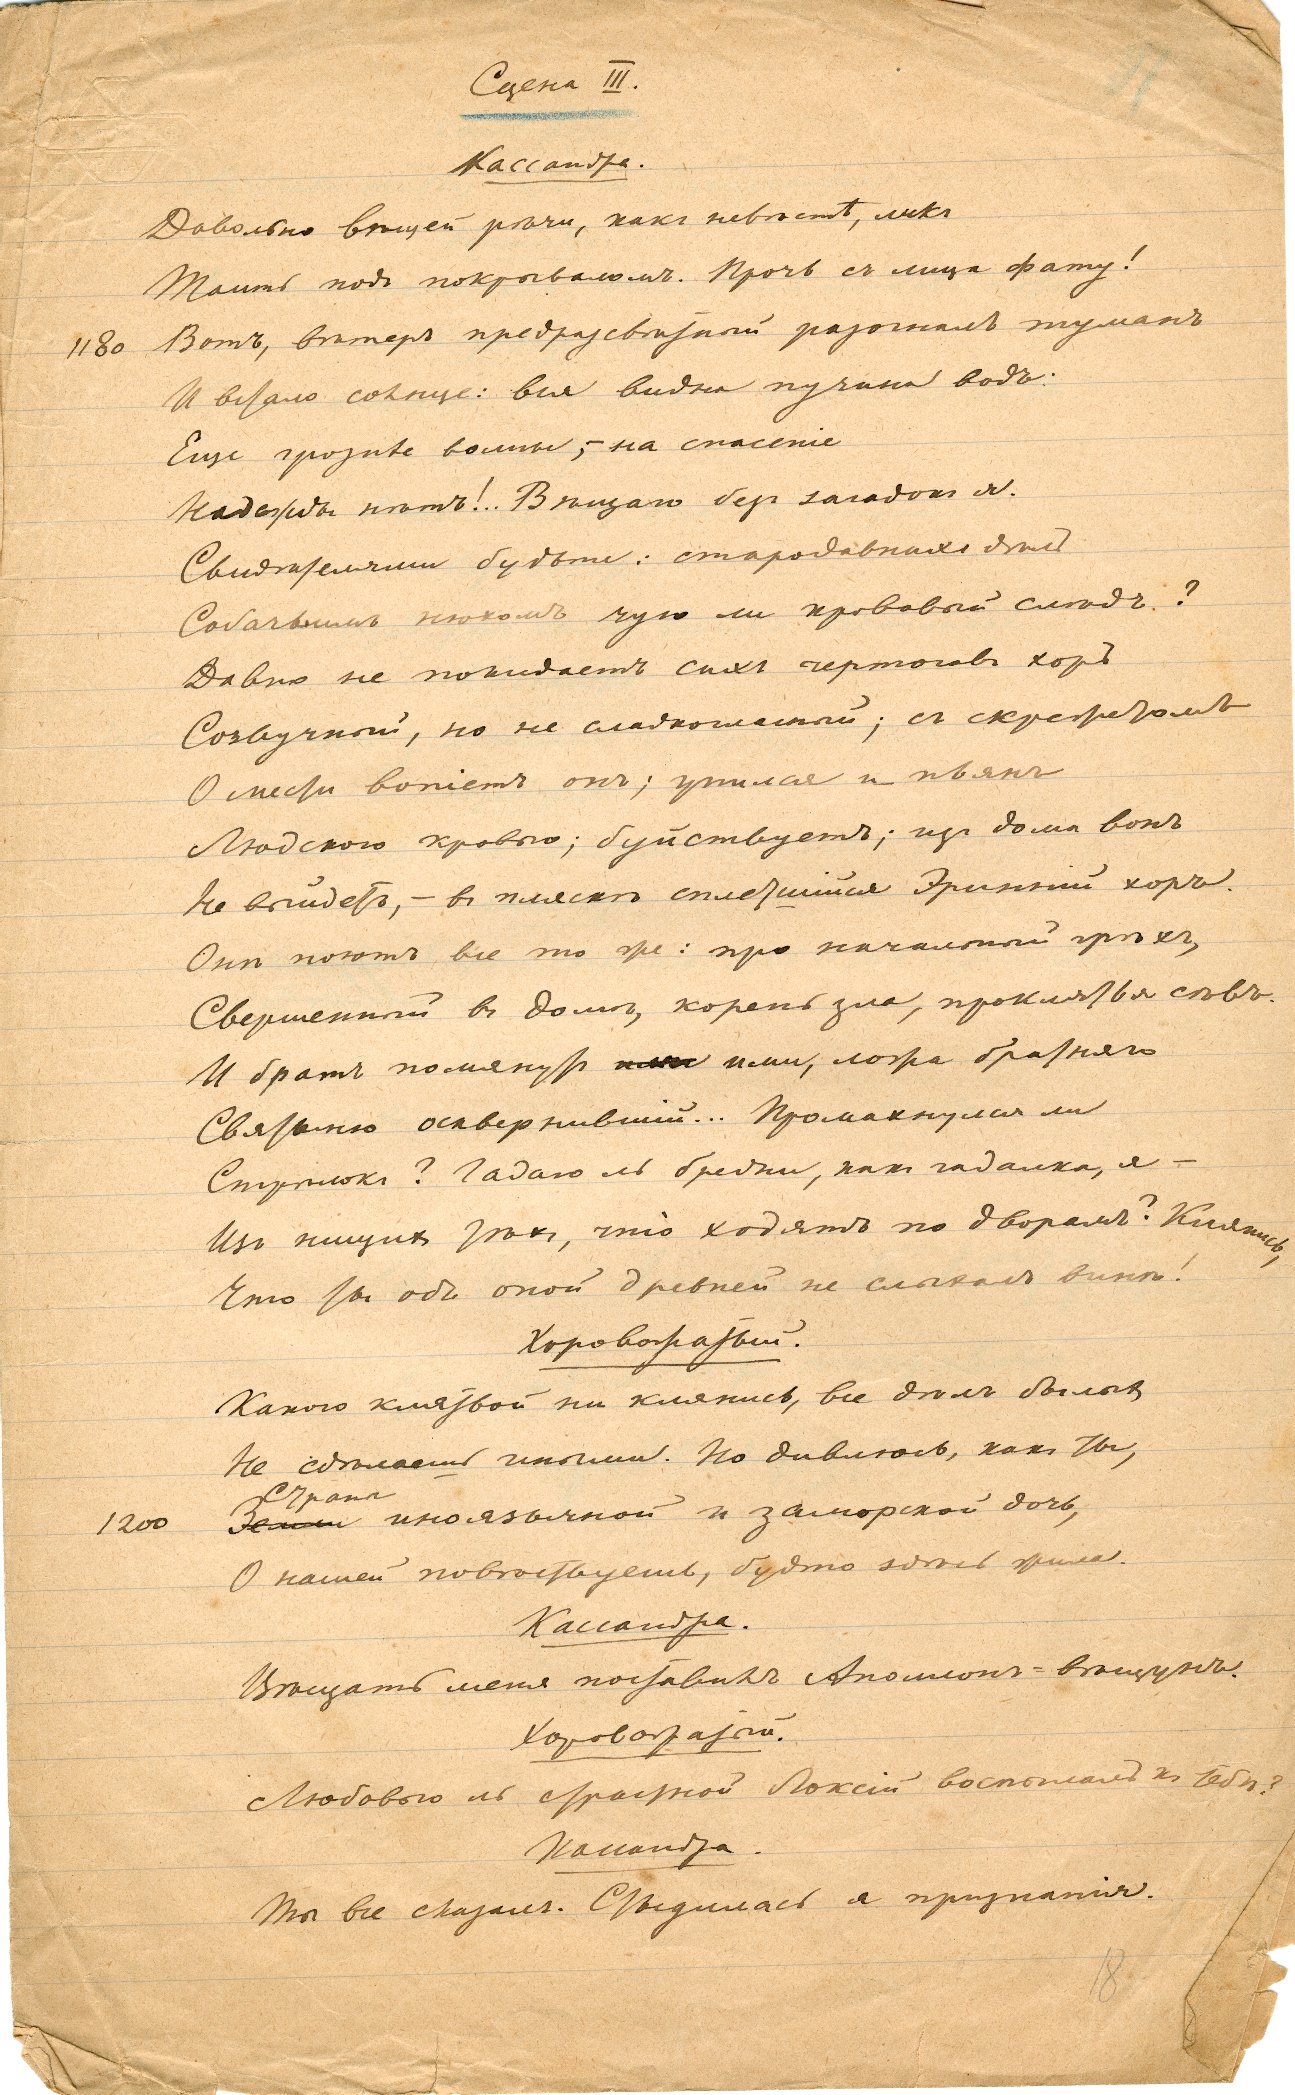 Сцена III.
Кассандра.
Довольно вѣщей рѣчи, какъ невѣстѣ, ликъ
Таить подъ покрываломъ. Прочь съ лица фату!
1180 Вотъ, вѣтеръ предразсвѣтный разогналъ туманъ
И встало солнце: вся видна пучина водъ:
Еще грознѣе волны, – на спасеніе
Надежды нѣтъ!.. Вѣщаю безъ загадокъ я.
Свидѣтелями будьте: стародавнихъ дѣлъ
Собачьимъ нюхомъ чую ли кровавый слѣдъ?
Давно не покидаетъ сихъ чертоговъ хоръ
Созвучный, но не сладкогласный; съ скрежетомъ
О мести вопіетъ онъ; упился и пьянъ
Людскою кровью; буйствуетъ; изъ дома вонъ
Не выйдетъ, – въ пляскѣ сплетшійся Эринній хоръ.
Онѣ поютъ все то же: про начальный грѣхъ,
Свершенный въ домѣ, корень зла, проклятья сѣвъ.
И братъ помянутъ ими, ложа братняго
Святыню осквернившій... Промахнулся ли
Стрѣлокъ? Гадаю ль бредни, какъ гадалка, я –
Изъ нищихъ тѣхъ, что ходятъ по дворамъ? Клянись,
Что ты объ оной древней не слыхалъ винѣ!
Хоровожатый.
Какою клятвой ни клянись, все дѣлъ былыхъ
Не сдѣлаешь иными. Но дивлюсь, какъ ты,
Страны
1200 Земли иноязычной и заморской дочь,
О нашей повѣствуешь, будто здѣсь жила.
Кассандра.
Вѣщать меня поставилъ Аполлонъ-вѣщунъ.
Хоровожатый.
Любовью ль страстной Локсій воспылалъ къ тебѣ?
Кассандра.
Ты все сказалъ. Стыдилась я признанія.
18